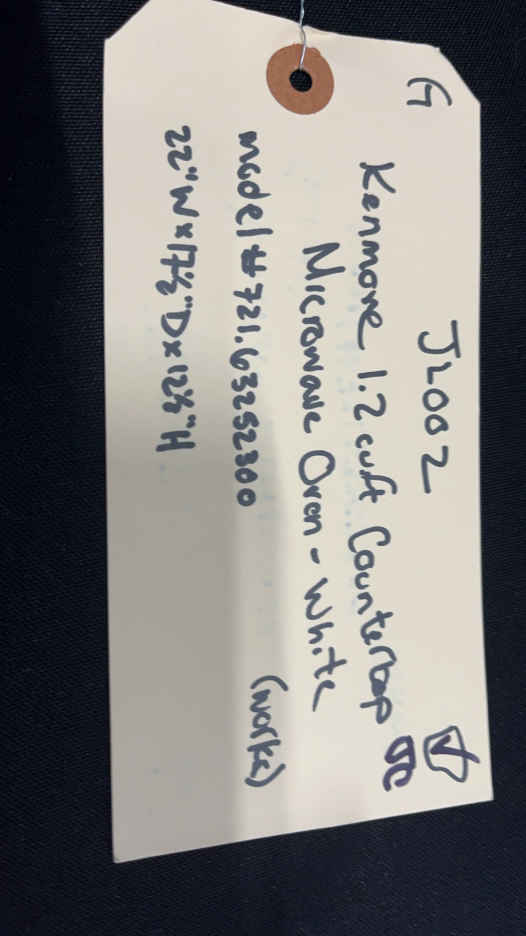 G
JL002
Kenmore 1.2 cuft Countertop
Microwave Oven - White
model # 721.63252300 (works)
22"W x 17 1/2"D x 12 3/8"H